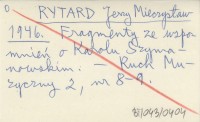 0
RYTARD Jerzy Mieczysław
1946. Fragmenty ze wspo-
mnień o Karolu Szyma-
nowskim. — Ruch Mu-
zyczny 2, nr 8-9.
81/043/0404